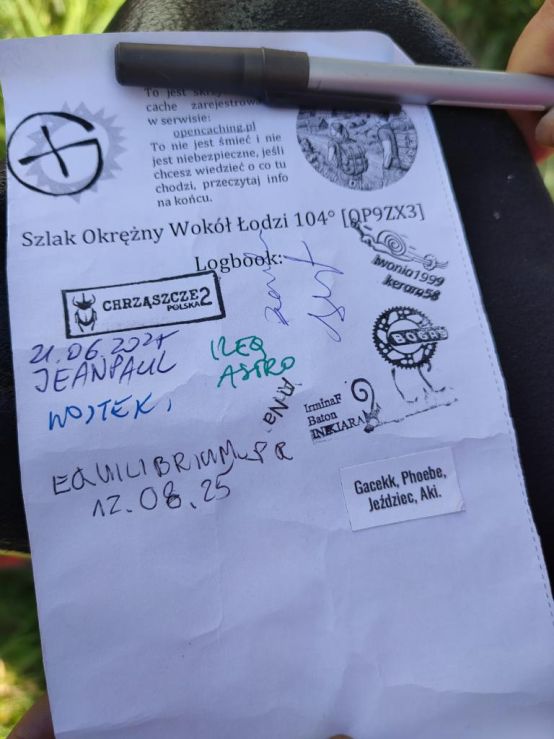 To jest
cache zarejestrowa
w serwisie:
opencaching.pl
To nie jest śmieć i nie
jest niebezpieczne, jeśli
chcesz wiedzieć o co tu
chodzi, przeczytaj info
na końcu.
Szlak Okrężny Wokół Łodzi 104° [OP9ZX3]
Logbook:
iwonia1999
keram58
CHRZĄSZCZE2
POLSKA
BOGHS
JEANPAUL
ILEQ
ASTRO
WOJTEK
An-Na
IrminaF
Baton
INKIARA
EQUILIBRIUM_PR
12.08.25
Gacekk, Phoebe,
Jeździec, Aki.